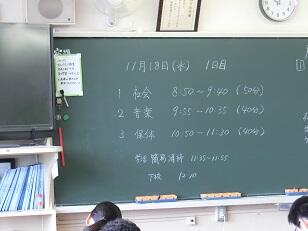 11月18日(水) 1日目
1 社会 8:50～9:40 (50分)
2 音楽 9:55～10:35 (40分)
3 保体 10:50～11:30 (40分)
簡易清掃 11:35-11:55
下校 12:10